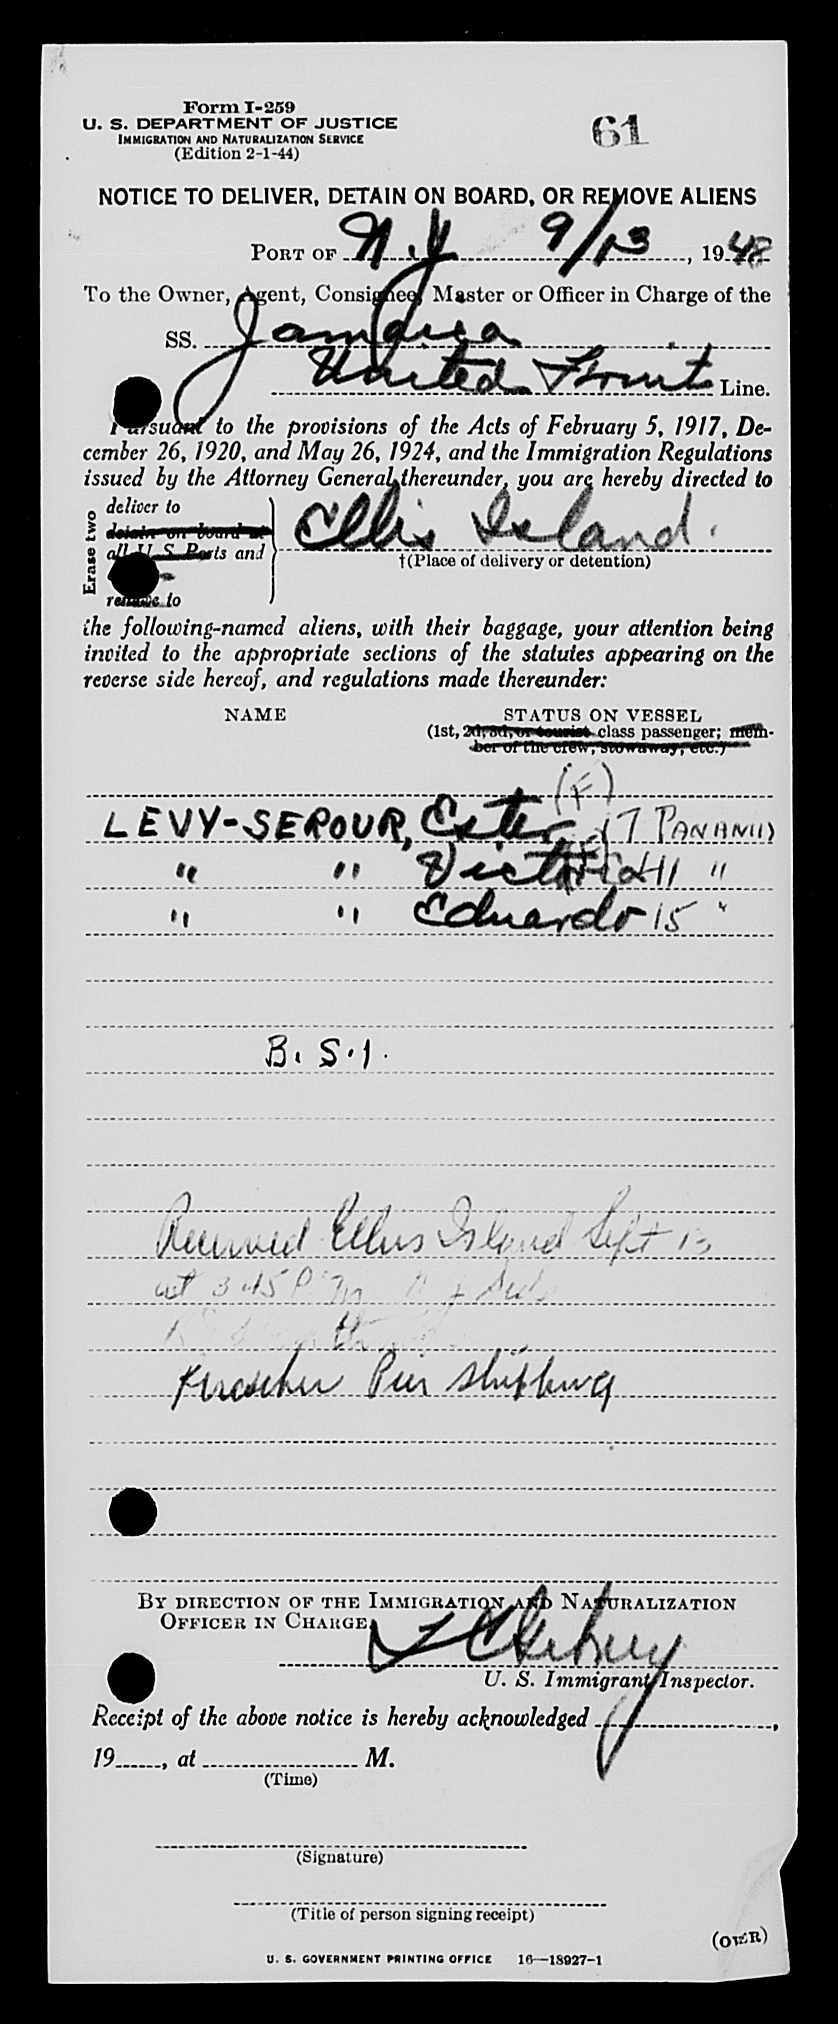 Form I-259
U. S. DEPARTMENT OF JUSTICE
IMMIGRATION AND NATURALIZATION SERVICE
(Edition 2-1-44)
61
NOTICE TO DELIVER, DETAIN ON BOARD, OR REMOVE ALIENS
PORT OF N.Y 9/13, 1948
To the Owner, Agent, Consignee, Master or Officer in Charge of the
SS. Jamaica
United Fruit Line.
Pursuant to the provisions of the Acts of February 5, 1917, De-
cember 26, 1920, and May 26, 1924, and the Immigration Regulations
issued by the Attorney General thereunder, you are hereby directed to
Erase two
deliver to
detain on board at
all U. S. Ports and
remove to
Ellis Island.
†(Place of delivery or detention)
the following-named aliens, with their baggage, your attention being
invited to the appropriate sections of the statutes appearing on the
reverse side hereof, and regulations made thereunder:
NAME
STATUS ON VESSEL
(1st, 2d, 3d, or tourist class passenger; mem-
ber of the crew, stowaway, etc.)
(F)
LEVY-SEROUR, Ester (7 PANAMA)
" " Victoria 11 "
" " Eduardo 15 "
B. S. I.
Received Ellis Island Sept 13
at 3 45 P M
Pier
BY DIRECTION OF THE IMMIGRATION AND NATURALIZATION
OFFICER IN CHARGE,
U. S. Immigrant Inspector.
Receipt of the above notice is hereby acknowledged
19, at M.
(Time)
(Signature)
(Title of person signing receipt)
(OVER)
U. S. GOVERNMENT PRINTING OFFICE 16—18927-1